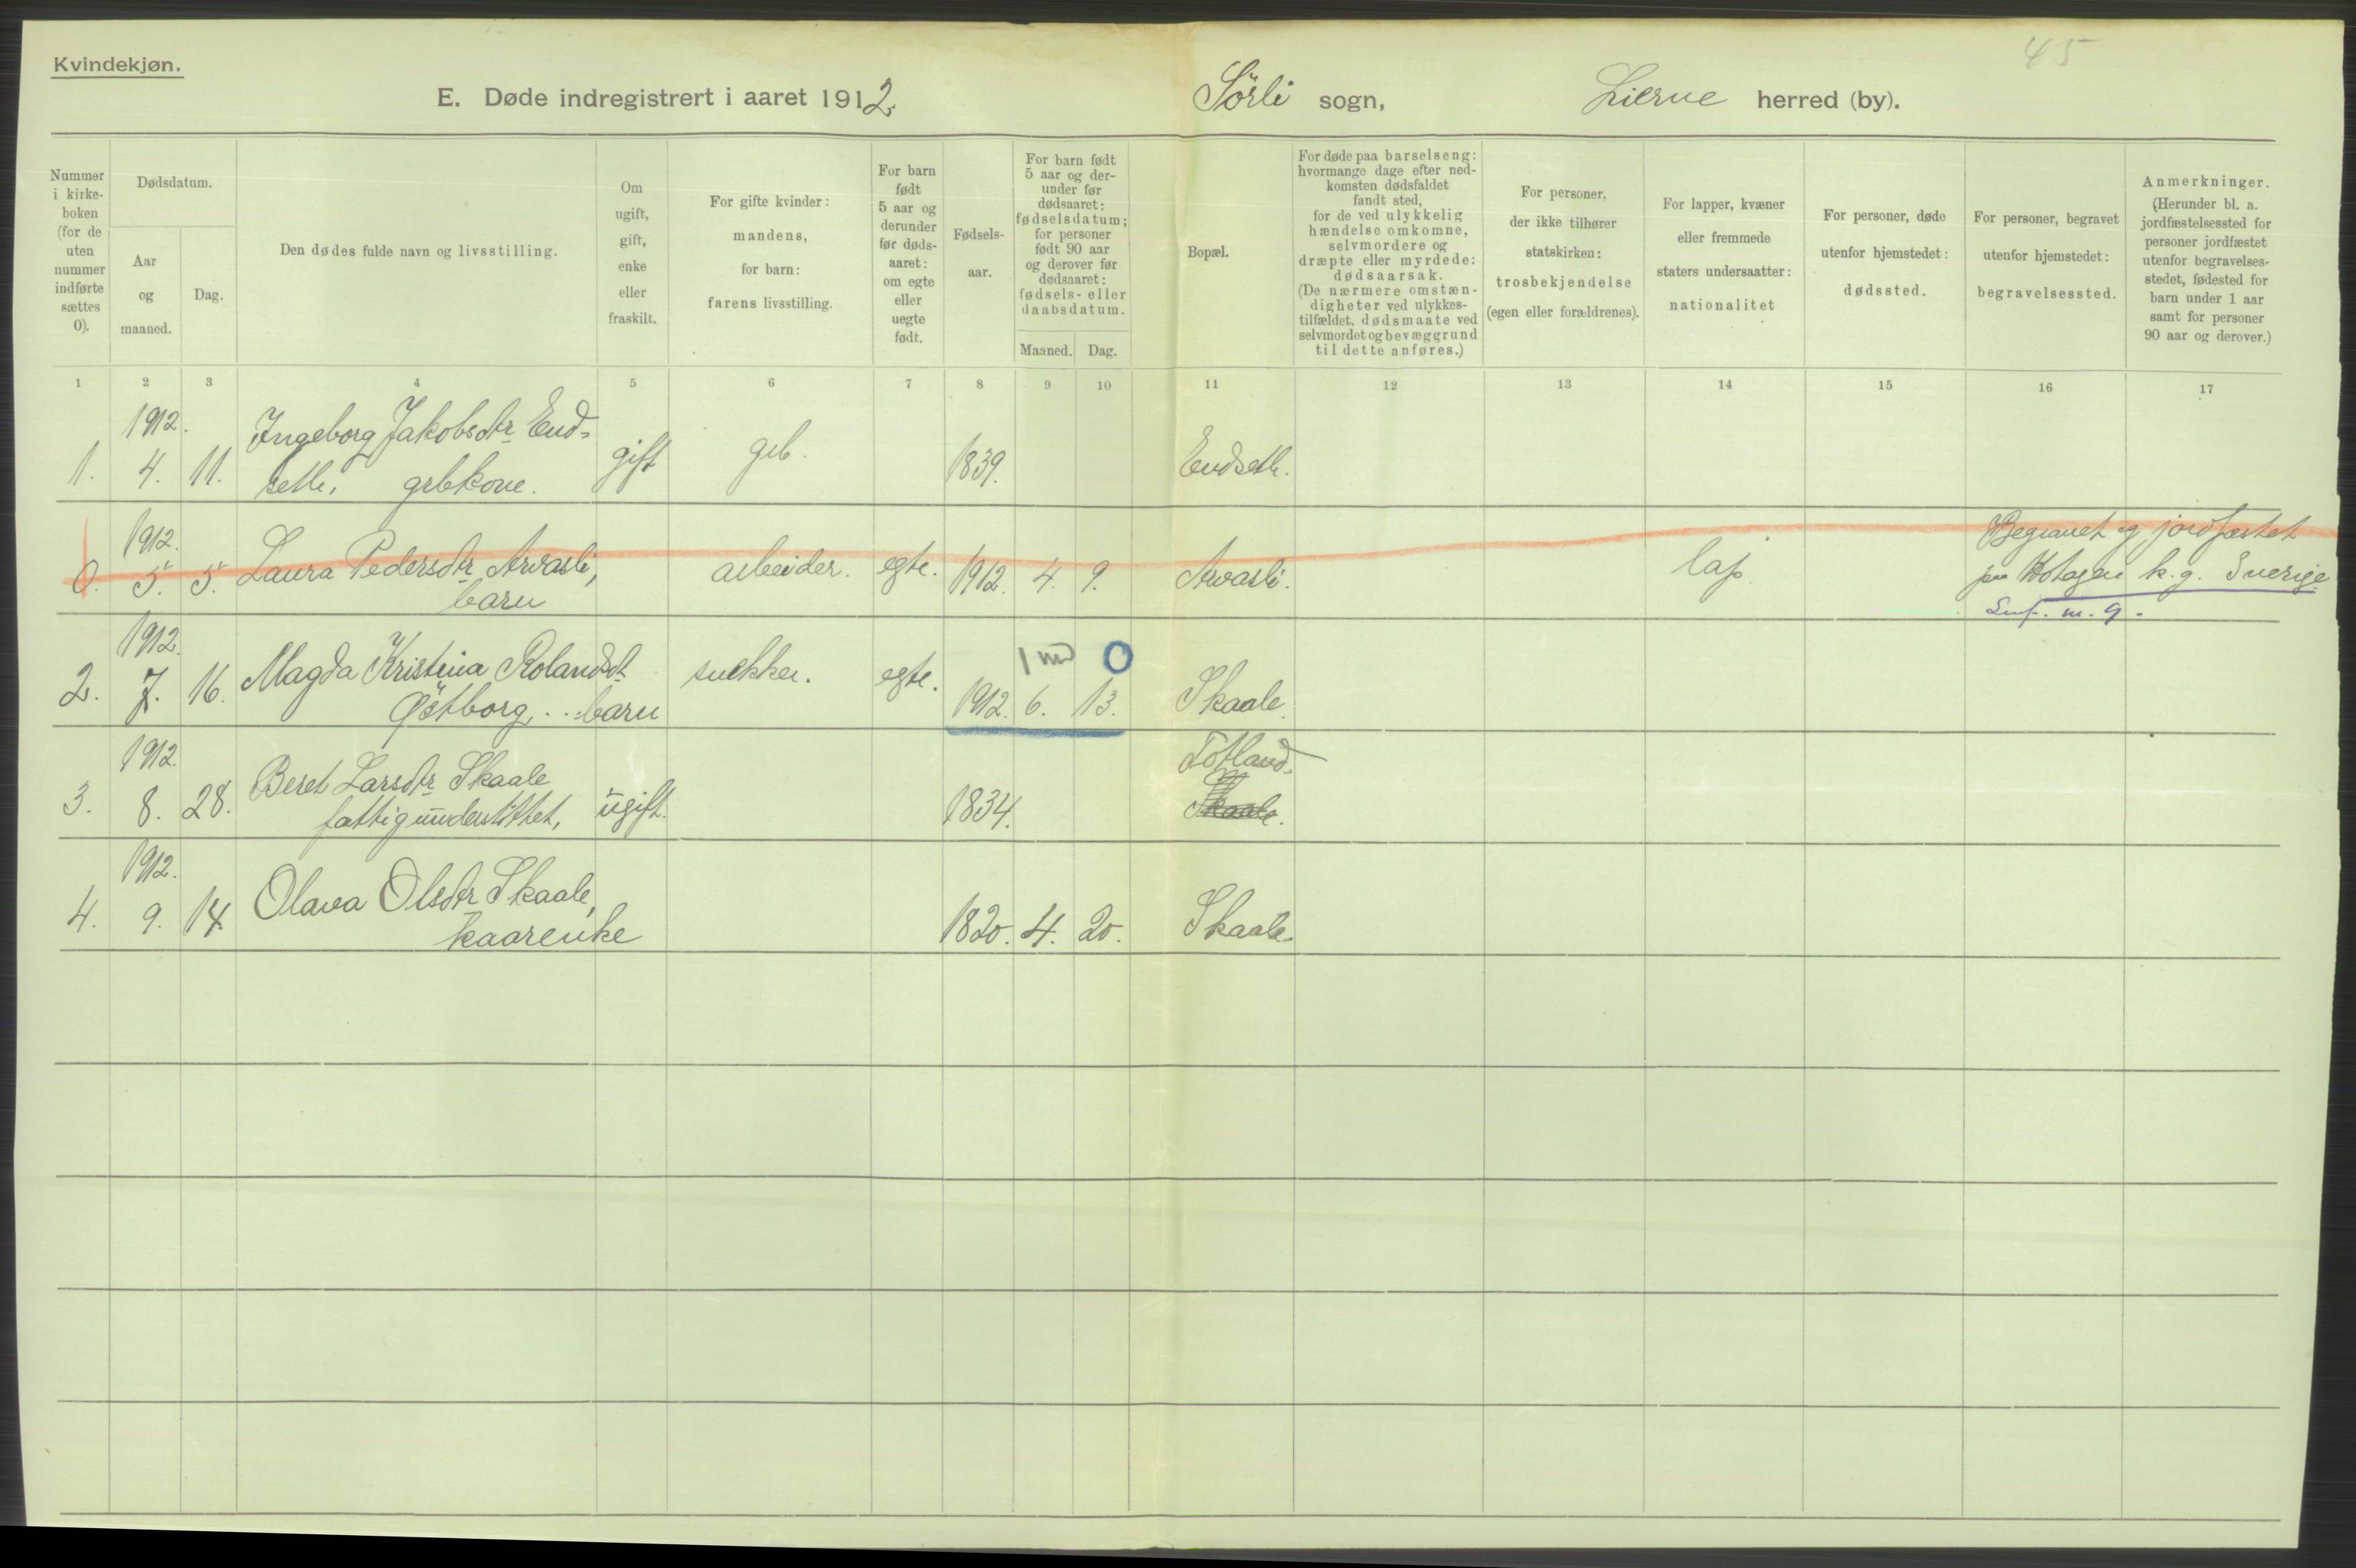 45
Kvindekjøn.
E. Døde indregistrert i aaret 1912. Sörli sogn, Lierne herred (by).
Nummer
i kirke-
boken
(for de
uten
nummer
indførte
sættes
0).
Dødsdatum.
Aar
og
maaned.
Dag.
Den dødes fulde navn og livsstilling.
Om
ugift,
gift,
enke
eller
fraskilt.
For gifte kvinder:
mandens,
for barn:
farens livsstilling.
For barn
født
5 aar og
derunder
før døds-
aaret:
om egte
eller
uegte
født.
Fødsels-
aar.
For barn født
5 aar og der-
under før
dødsaaret:
fødselsdatum;
for personer
født 90 aar
og derover før
dødsaaret:
fødsels- eller
daabsdatum.
Maaned. Dag.
Bopæl.
For døde paa barselseng:
hvormange dage efter ned-
komsten dødsfaldet
fandt sted,
for de ved ulykkelig
hændelse omkomne,
selvmordere og
dræpte eller myrdede:
dødsaarsak.
(De nærmere omstæn-
digheter ved ulykkes-
tilfældet, dødsmaate ved
selvmordet og bevæggrund
til dette anføres.)
For personer,
der ikke tilhører
statskirken:
trosbekjendelse
(egen eller forældrenes).
For lapper, kvæner
eller fremmede
staters undersaatter:
nationalitet
For personer, døde
utenfor hjemstedet:
dødssted.
For personer, begravet
utenfor hjemstedet:
begravelsessted.
Anmerkninger.
(Herunder bl. a.
jordfæstelsessted for
personer jordfæstet
utenfor begravelses-
stedet, fødested for
barn under 1 aar
samt for personer
90 aar og derover.)
1 2 3 4 5 6 7 8 9 10 11 12 13 14 15 16 17
1912.
Ingeborg Jakobsdtr End-
1. 4. 11. seth, grbkone. gift grb. 1839. Endseth.
1912.
Begravet og jordfæstet
0. 5. 5. Laura Pedersdtr Arvasli, arbeider. egte. 1912. 4. 9. Arvasli. lap. paa Hotagen k.g. Sverige.
barn
m. 9.
1912.
1 md 0
2. 7. 16. Magda Kristina Rolandsdt snekker. egte. 1912. 6. 13. Skaale.
Östborg. barn
1912.
Totland.
3. 8. 28. Beret Larsdtr Skaale ugift. 1834. Skaale.
fattigunderstöttet,
1912.
4. 9. 14. Olava Olsdtr Skaale, 1820. 4. 20. Skaale.
kaarenke